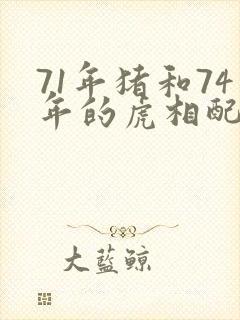 71年猪和74
年的虎相配
大蓝鲸